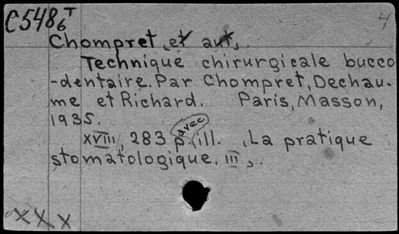 C5486T
4
Chompret, et aut,.
Technique chirurgicale bucco
-dentaire. Par Chompret, Dechau-
me et Richard. Paris, Masson,
1935.
XVIII, 283 p. avec ill. , La pratique
stomatologique. III,.
XXX